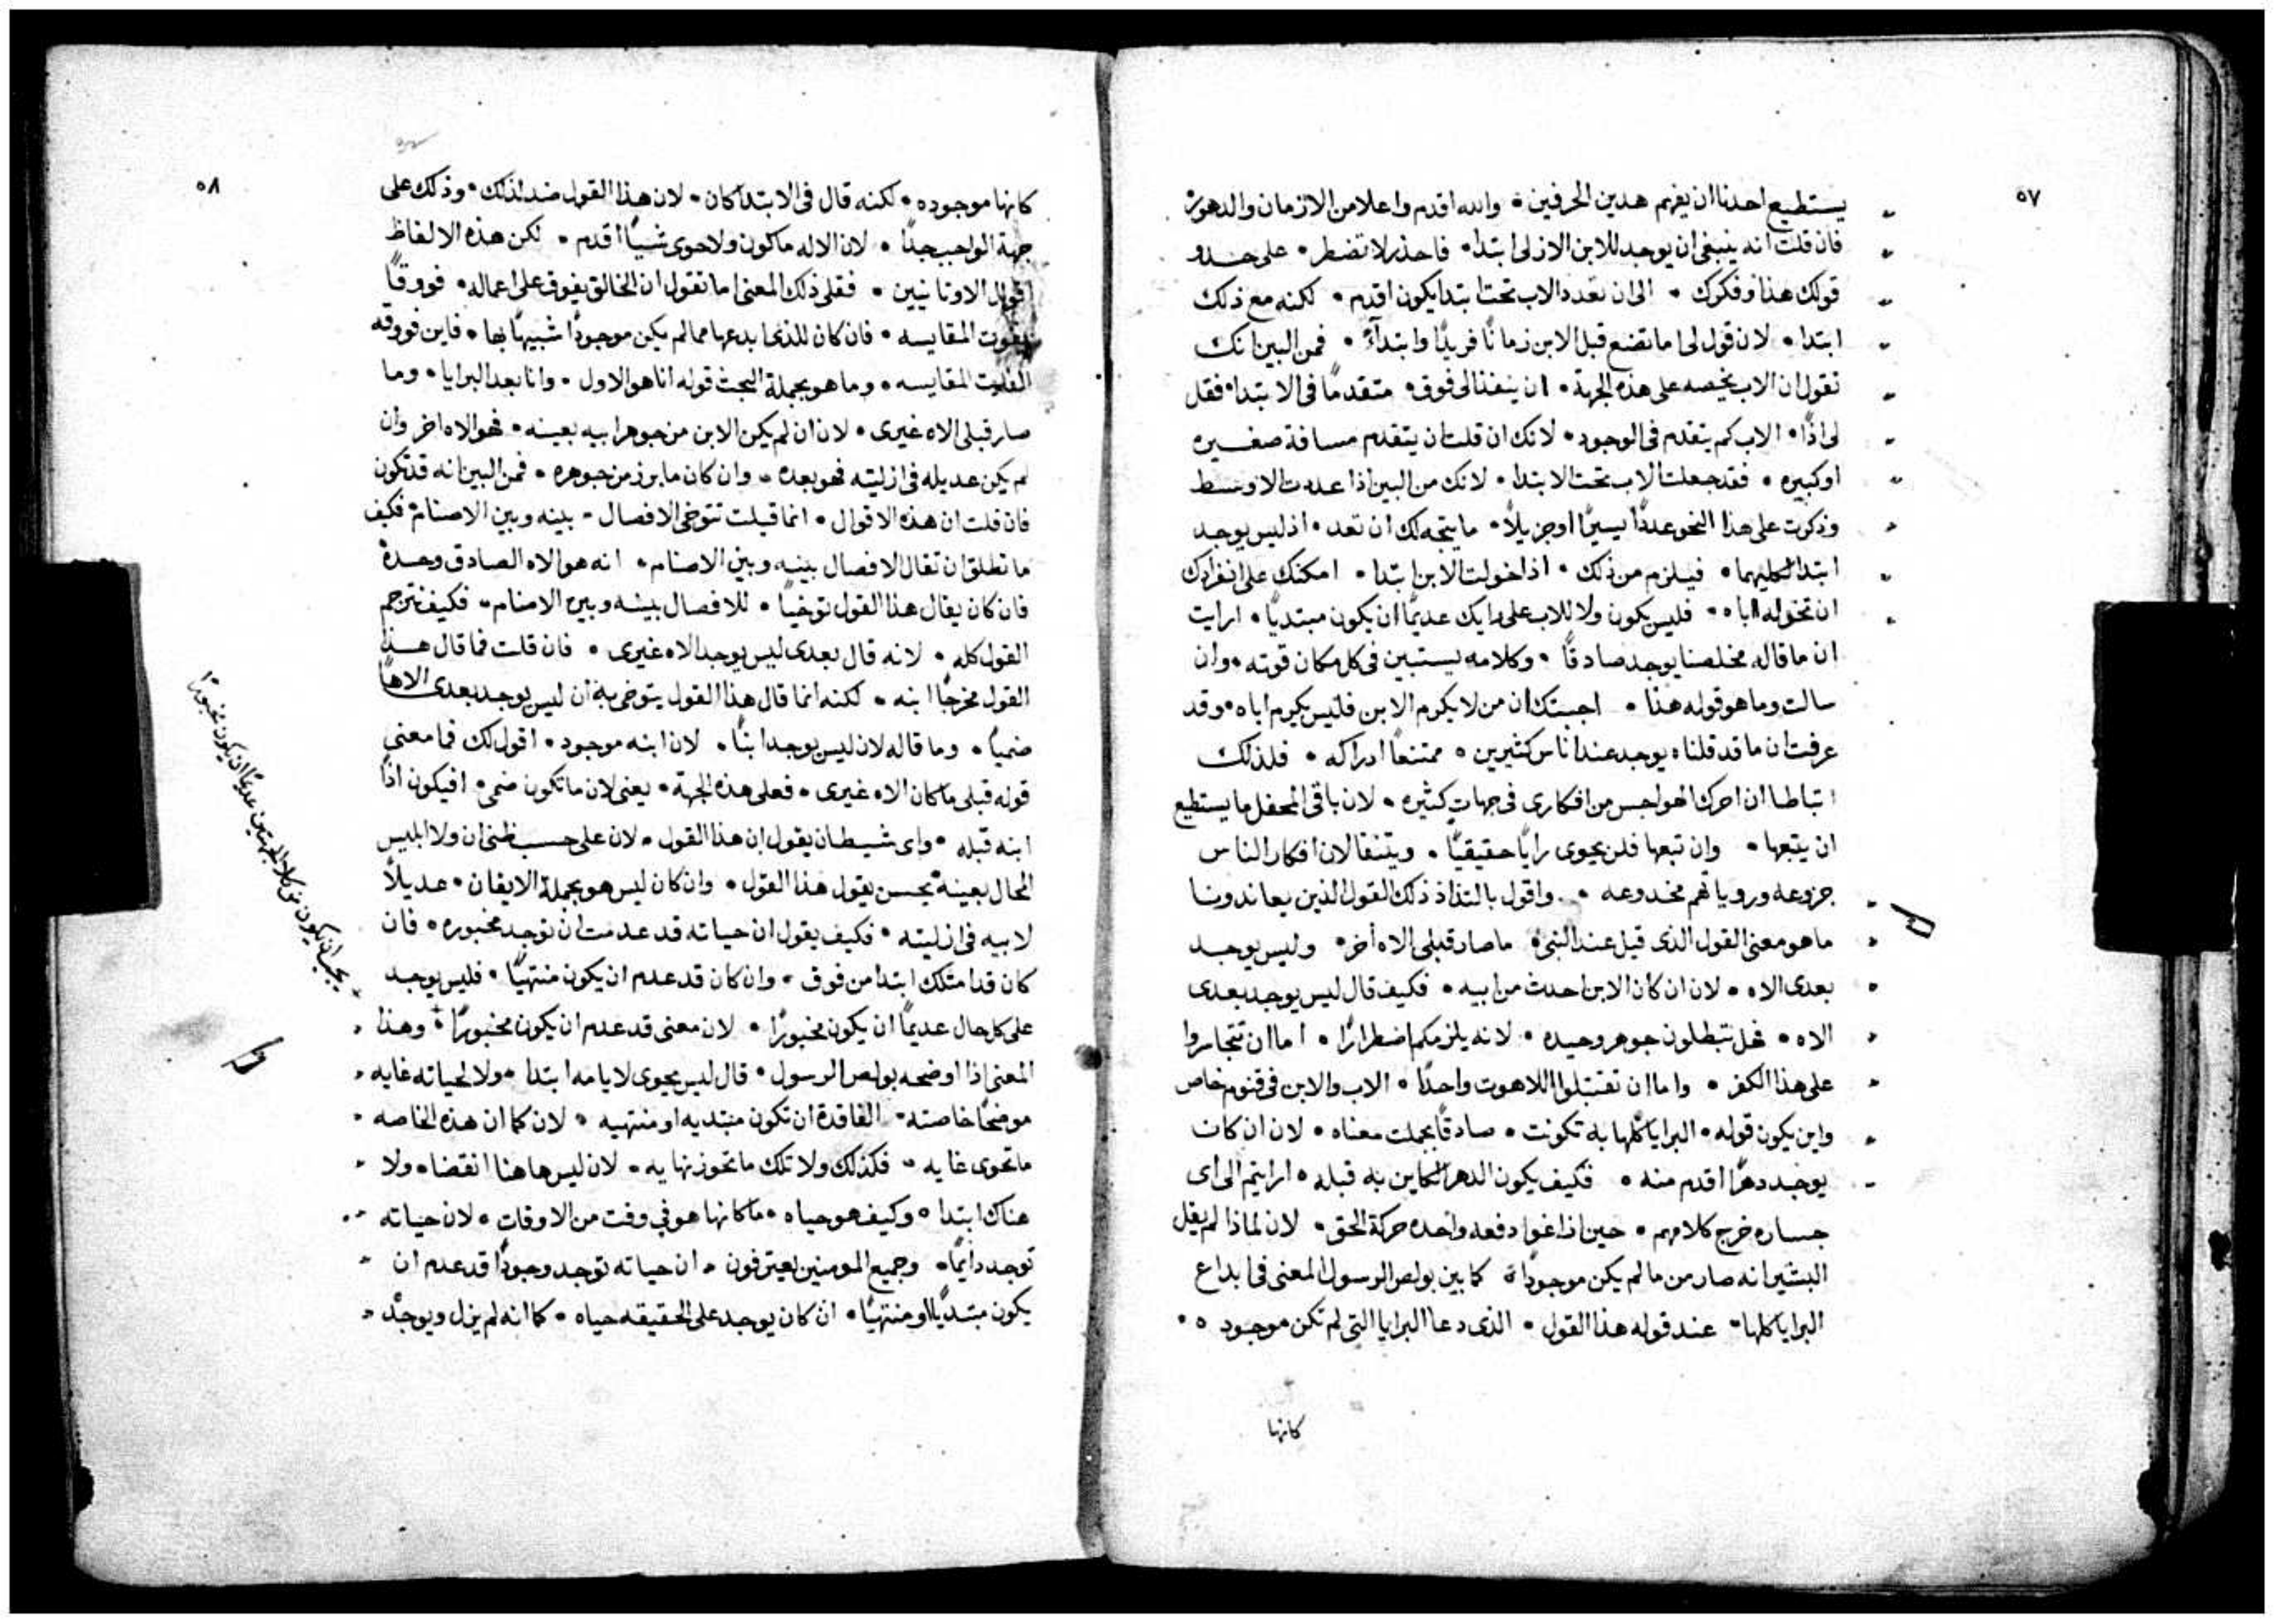 ٥٧
يستطيع احدنا ان يفهم هدين الحرفين • والله اقدم واعلا من الازمان والدهور
فان قلت انه ينبغى ان يوجد للابن الازلى ابتدا • فاحذر لا تضطر • على حذو
قولك هذا وفكرك • الى ان تعدد الاب تحت ابتدا يكون اقدم • لكنه مع ذلك
ابتدا • لان قول لى اما تضع قبل الابن زمانًا فريدًا وابتدآءً • فمن البين انك
تقول ان الاب يخصه على هذه الجهة • ان ينفذ الى فوق • متقدمًا فى الابتدا • فقل
لى اذًا • الاب كم يتقدم فى الوجود • لانك ان قلت ان يتقدم مسافة صغيره
او كبيره • فقد جعلت الاب تحت الابتدا • لانك من البين اذا عددت الاوسط
وذكرت على هذا النحو عددًا يسيرًا او جزيلاً • ما يتجه لك ان تعد • اذ ليس يوجد
ابتدا لكليهما • فيلزم من ذلك • اذا خولت الابن ابتدا • امكنك على انفرادك
ان تخوله اباه • فليس يكون ولا للاب على رايك عديمًا ان يكون مبتديًا • ارايت
ان ما قاله مخلصنا يوجد صادقًا • وكلامه يستبين فى كل مكان قوته • وان
سالت وما هو قوله هذا • اجبتك ان من لا يكرم الابن فليس يكرم اباه • وقد
عرفت ان ما قد قلناه يوجد عند اناس كثيرين • ممتنعًا ادراكه • فلذلك
اتباطا ان احرك الهواجس من افكارى فى جهات كثيره • لان باقى المحفل ما يستطيع
ان يتبعها • وان تبعها فلن يحوى رايًا حقيقيًا • ويتنقا لان افكار الناس
جزوعه وروياتهم مخدوعه • واقول بالتذاذ ذلك القول الذين يعاندونا
ما هو معنى القول الذى قيل عند النبى • ما صار قبلى الاه آخر • وليس يوجد
بعدى الاه • لان ان كان الابن احدث من ابيه • فكيف قال ليس يوجد بعدى
الاه • فهل تبطلون جوهر وحيده • لانه يلزمكم اضطرارًا • اما ان تتجاسروا
على هذا الكفر • واما ان تقتبلوا اللاهوت واحدًا • الاب والابن فى قنوم خاص
واين يكون قوله • البرايا كلها به تكونت • صادقًا بجملت معناه • لان ان كان
يوجد دهرًا اقدم منه • فكيف يكون الدهر الكاين به قبله • ارايتم الى اى
جساره خرج كلامهم • حين اذاغوا دفعه واحده حركة الحق • لان لماذا لم يقل
البشير انه صار من ما لم يكن موجودًا • كما بين بولص الرسول المعنى فى ابداع
البرايا كلها • عند قوله هذا القول • الذى دعا البرايا التى لم تكن موجوده •
كانها
٥٨
كانها موجوده • لكنه قال فى الابتدا كان • لان هذا القول ضد لذلك • وذلك على
جهة الواجب جدًا • لان الاله ما كون ولا حوى شيًا اقدم • لكن هذه الالفاظ
اقوال الاوتانيين • فقل ذلك المعنى اما تقول ان الخالق يفوق على اعماله • فووقًا
يفوت المقايسه • فان كان للذى ابدعها مما لم يكن موجودًا شبيهًا بها • فاين فووقه
الفايت المقايسه • وما هو بجملة البحث قوله انا هو الاول • وانا بعد البرايا • وما
صار قبلى الاه غيرى • لان ان لم يكن الابن من جوهر ابيه بعينه • فهو الاه اخر وان
لم يكن عديله فى ازليته فهو بعده • وان كان ما برز من جوهره • فمن البين انه قد تكون
فان قلت ان هذه الاقوال • انما قيلت تتوخى الافصال • بينه وبين الاصنام • فكيف
ما تطلق ان تقال الافصال بينه وبين الاصنام • انه هو الاه الصادق وحده
فان كان يقال هذا القول توخيًا • للافصال بينه وبين الاصنام • فكيف تترجم
القول كله • لانه قال بعدى ليس يوجد الاه غيرى • فان قلت فما قال هذا
القول مخرجًا ابنه • لكنه انما قال هذا القول يتوخى به ان ليس يوجد بعدى الاهًا
ضميًا • وما قاله لان ليس يوجد ابنًا • لان ابنه موجود • اقول لك فما معنى
قوله قبلى ما كان الاه غيرى • فعلى هذه الجهة • يعنى لان ما تكون ضمى • افيكون اذًا
ابنه قبله • واى شيطان يقول ان هذا القول • لان على حسب ظنى ان ولا ابليس
المحال بعينه يحسن يقول هذا القول • وان كان ليس هو بجملة الايقان • عديلاً
لابيه فى ازليته • فكيف يقول ان حياته قد عدمت ان توجد مخبوره • فان
كان قد امتلك ابتدا من فوق • وان كان قد عدم ان يكون منتهيًا • فليس يوجد
على كل حال عديمًا ان يكون مخبورًا • لان معنى قد عدم ان يكون مخبورًا + وهذا
المعنى اذا اوضحه بولص الرسول • قال ليس يحوى لايامه ابتدا • ولا لحياته غايه
موضحًا خاصته • الفاقدة ان تكون مبتديه او منتهيه • لان كما ان هذه الخاصه
ما تحوى غايه • فكذلك ولا تلك ما تحوز نهايه • لان ليس هاهنا انقضاه ولا
هناك ابتدا • وكيف هو حياه • ما كانها هو فى وقت من الاوقات • لان حياته
توجد دايمًا • وجميع المومنين يعترفون • ان حياته توجد وجودًا قد عدم ان
يكون مبتديًا او منتهيًا • ان كان يوجد على الحقيقه حياه • كما انه لم يزل ويوجد
+ يجب ان يكون من كلا الجهتين عديمًا ان يكون مخبورًا